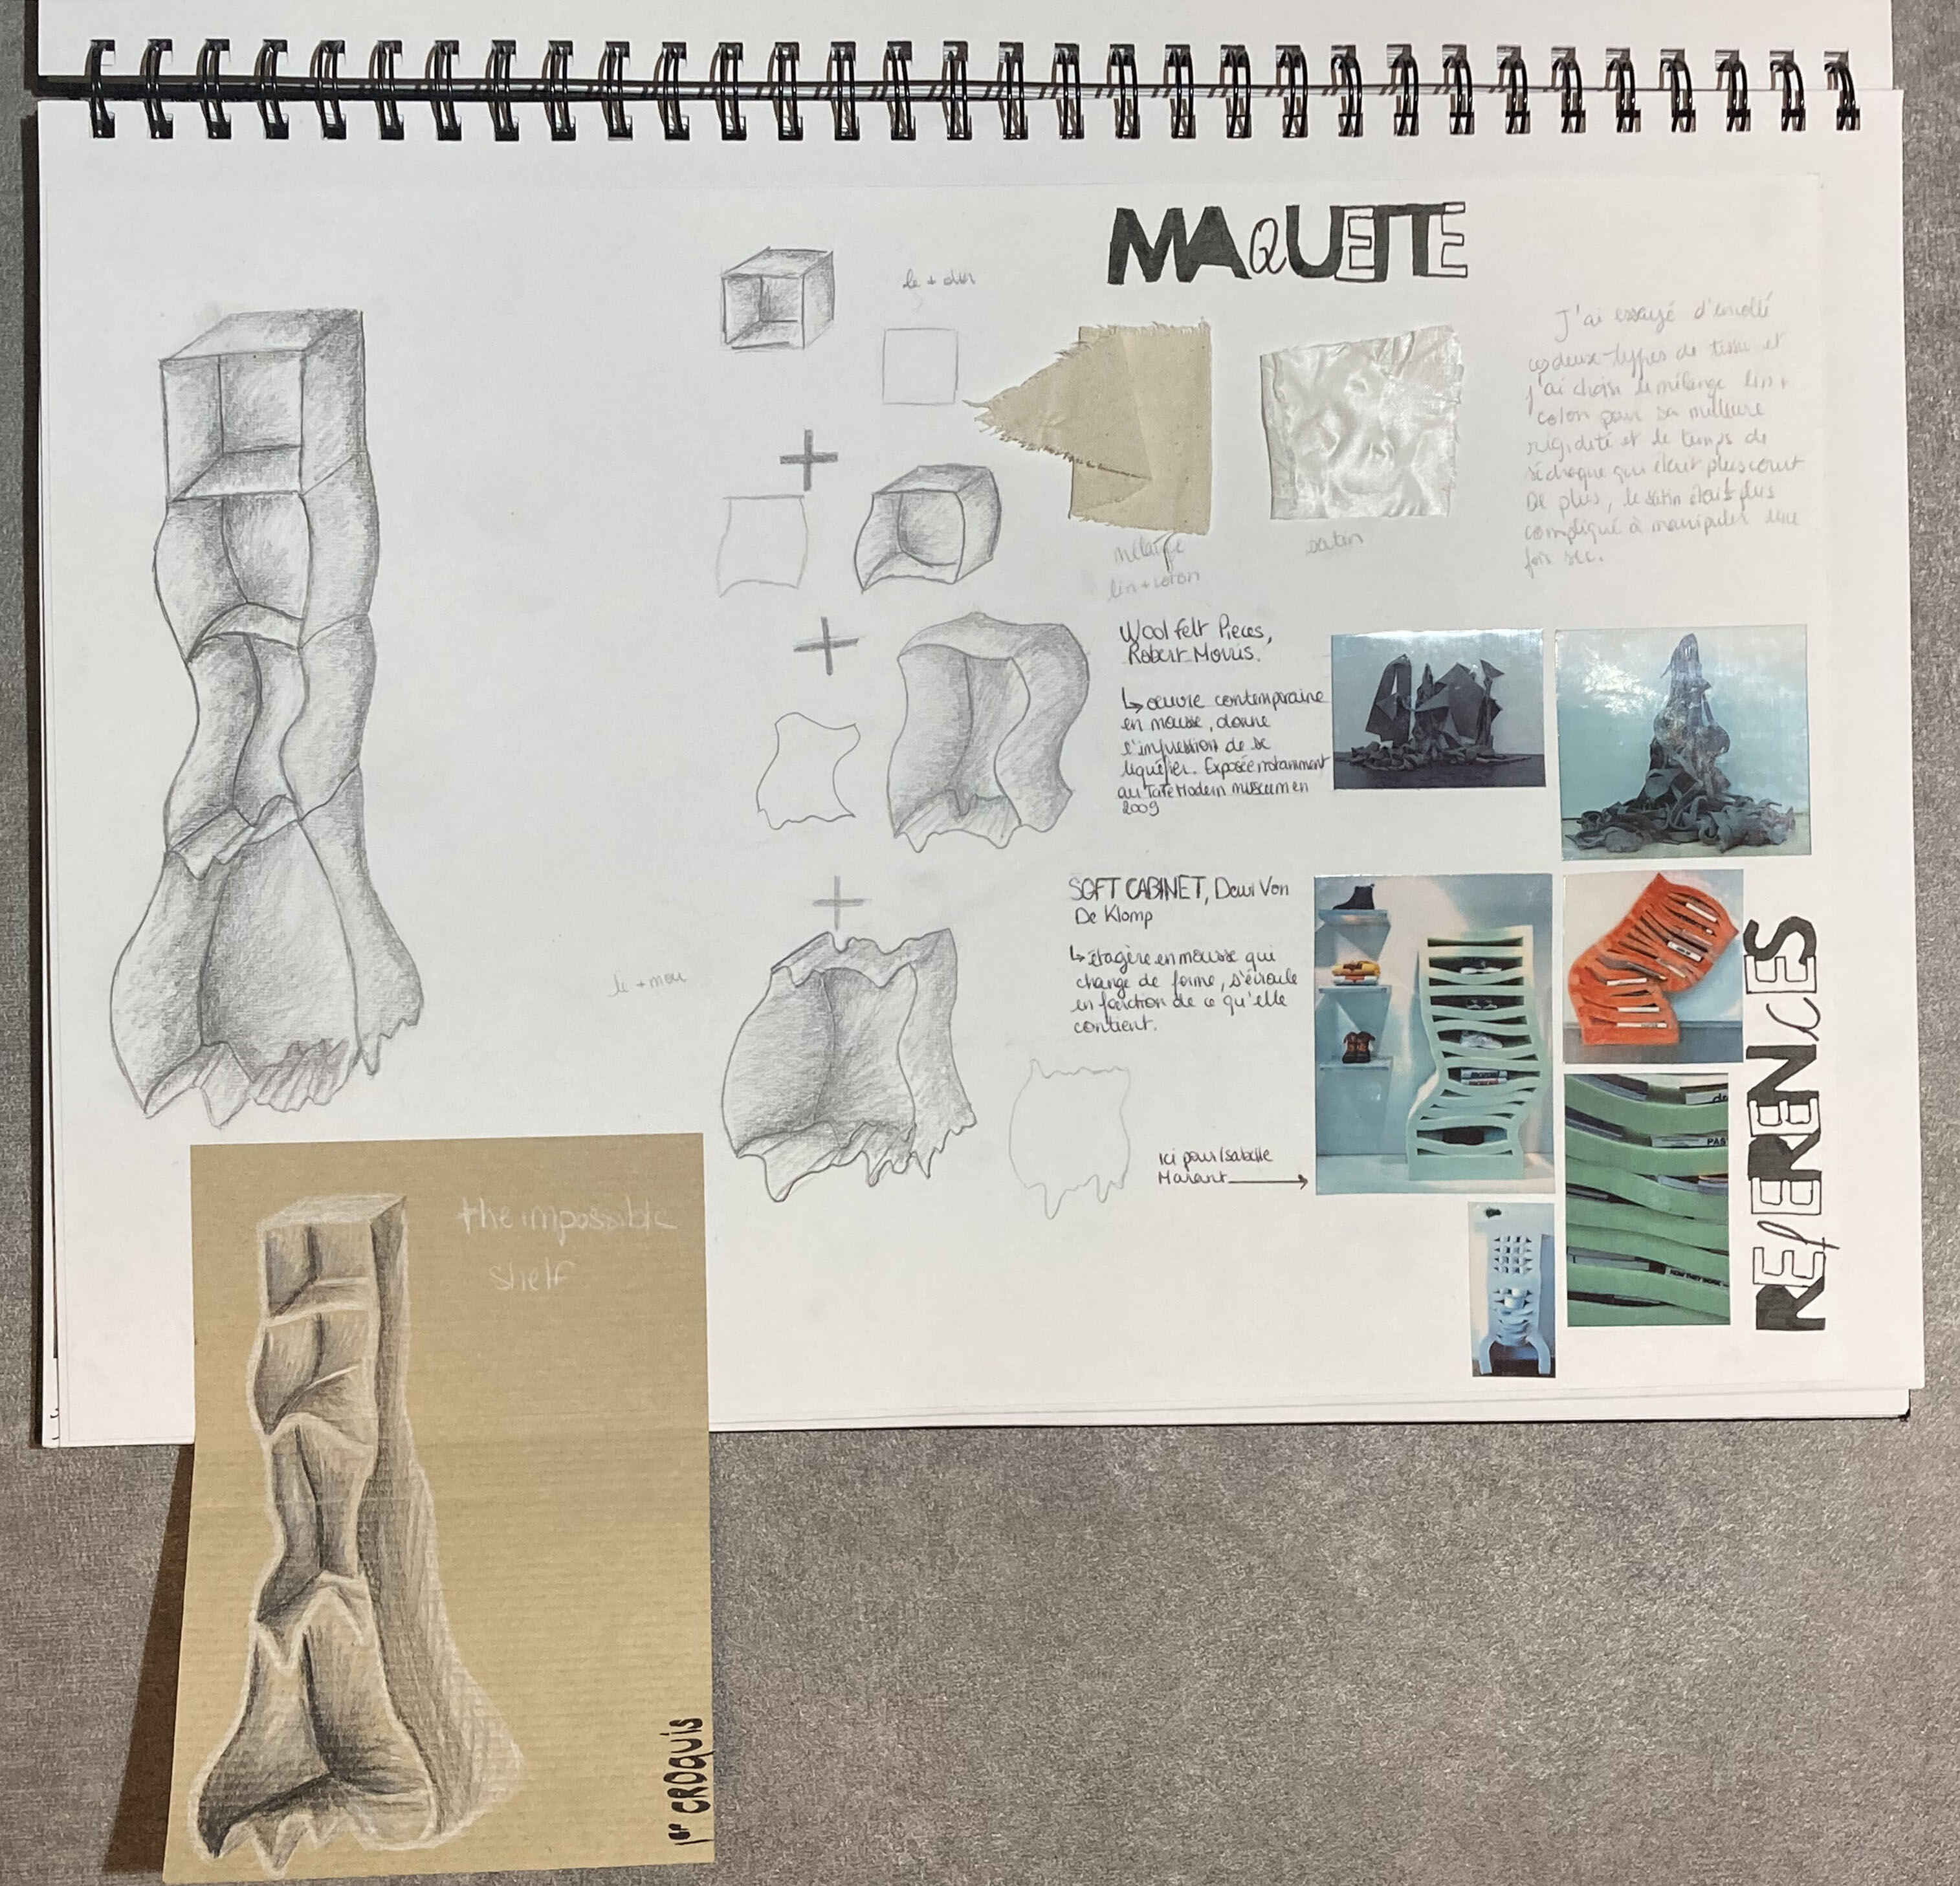 MAQUETTE
le + dur
J'ai essayé d'enollé
ces deux types de tissu et
j'ai choisi le mélange lin +
coton pour sa meilleure
rigidité et le temps de
séchage qui était plus court
De plus, le satin était plus
compliqué à manipuler une
fois sec.
mélange
lin + coton
satin
Wool felt Pieces,
Robert Morris.
↳ oeuvre contemporaine
en mousse, donne
l'impression de se
liquéfier. Exposée notamment
au Tate Modern museum en
2009
SOFT CABINET, Dewi Van
De Klomp
↳ étagère en mousse qui
change de forme, s'écroule
en fonction de ce qu'elle
contient.
le + mou
ici pour Isabelle
Marant
REfERENcES
the impossible
shelf
1er CROQUIS